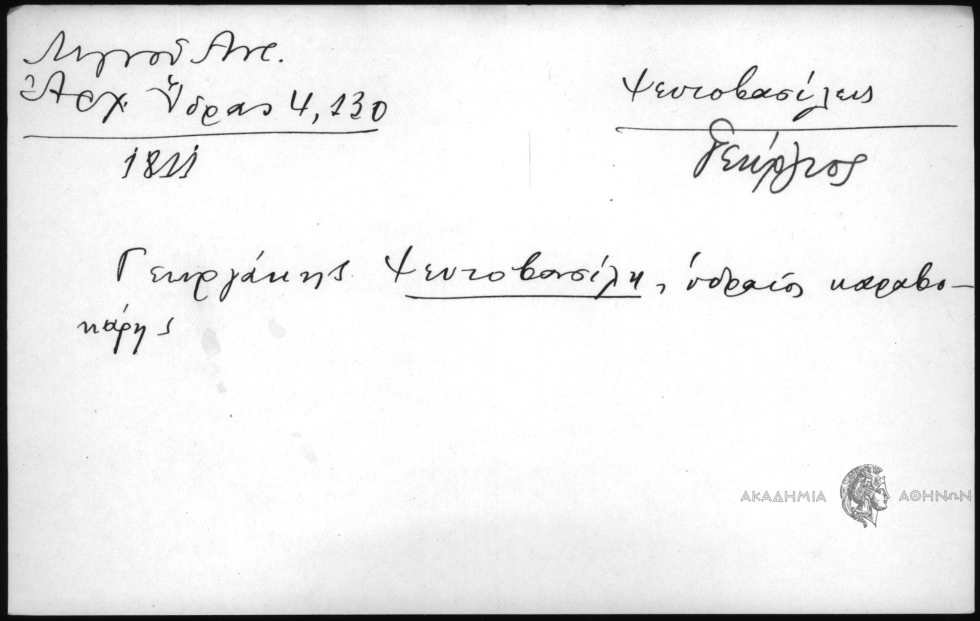 Λιγνοῦ Ἀντ.
Ἀρχ. Ὕδρας 4, 130
1811
Ψευτοβασίλης
Γεώργιος
Γεωργάκης Ψευτοβασίλη, ὑδραῖος καραβο-
κύρης
ΑΚΑΔΗΜΙΑ ΑΘΗΝΩΝ